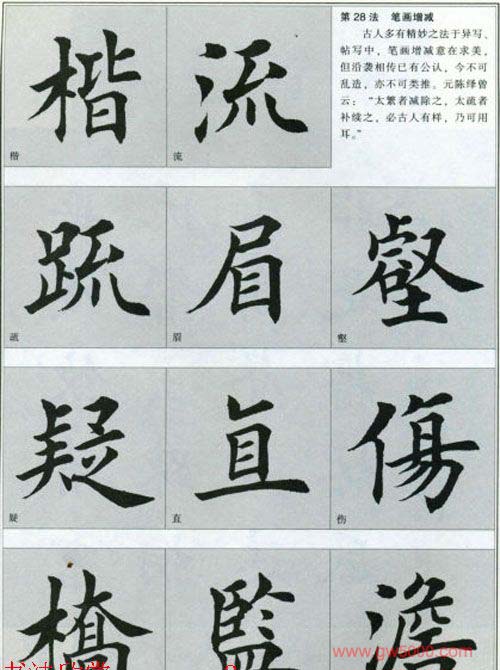 楷 流
楷 流
第28法 笔画增减
古人多有精妙之法于异写、
帖写中，笔画增减意在求美，
但沿袭相传已有公认，今不可
乱造，亦不可类推。元陈绎曾
云：“太繁者减除之，太疏者
补续之，必古人有样，乃可用
耳。”
䟽 眉 壑
疏 眉 壑
疑 直 傷
疑 直 伤
橋 監